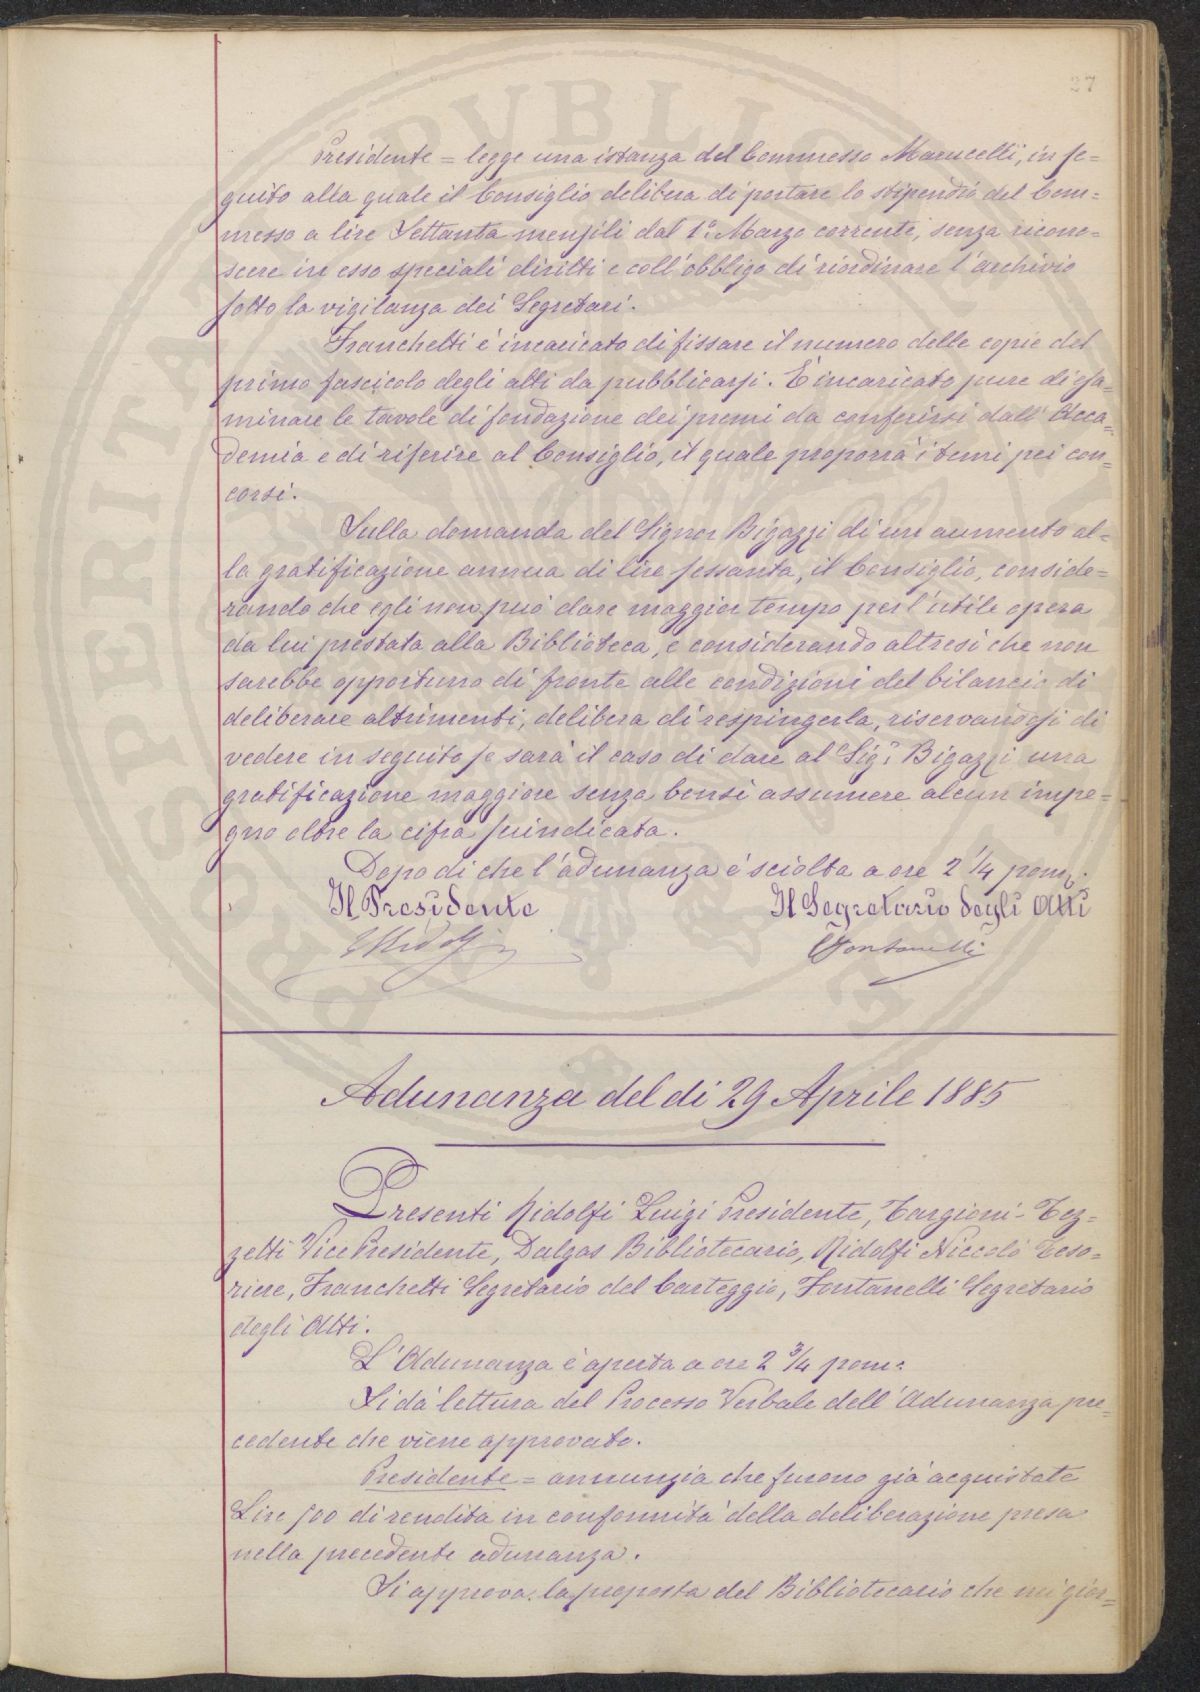 27
Presidente = legge una istanza del Commesso Marucelli, in se=
guito alla quale il Consiglio delibera di portare lo stipendio del Com=
messo a lire Settanta mensili dal 1º Marzo corrente, senza ricono=
scere in esso speciali diritti e coll'obbligo di riordinare l'archivio
sotto la vigilanza dei Segretari.
Franchetti é incaricato di fissare il numero delle copie del
primo fascicolo degli atti da pubblicarsi. É incaricato pure di esa=
minare le tavole di fondazione dei premi da conferirsi dall'Acca=
demia e di riferire al Consiglio, il quale proporrà i temi pei con=
corsi.
Sulla domanda del Signor Bigazzi di un aumento al=
la gratificazione annua di lire sessanta, il Consiglio, conside=
rando che egli non può dare maggior tempo per l'utile opera
da lui prestata alla Biblioteca, e considerando altresì che non
sarebbe opportuno di fronte alle condizioni del bilancio di
deliberare altrimenti, delibera di respingerla, riservandosi di
vedere in seguito se sarà il caso di dare al Sigr Bigazzi una
gratificazione maggiore senza bensì assumere alcun impe=
gno oltre la cifra suindicata.
Dopo di che l'adunanza é sciolta a ore 2 1/4 pom.
Il Presidente Il Segretario degli Atti
LRidolfi CFontanelli
Adunanza del di 29 Aprile 1885
Presenti Ridolfi Luigi Presidente, Targioni-Toz=
zetti Vice Presidente, Dalgas Bibliotecario, Ridolfi Niccolò Teso=
riere, Franchetti Segretario del Carteggio, Fontanelli Segretario
degli Atti.
L'Adunanza é aperta a ore 2 3/4 pom:
Si dà lettura del Processo Verbale dell'Adunanza pre=
cedente che viene approvato.
Presidente = annunzia che furono già acquistate
Lire 500 di rendita in conformità della deliberazione presa
nella precedente adunanza.
Si approva la proposta del Bibliotecario che nei gior=
PROSPERITATI PVBLICAE